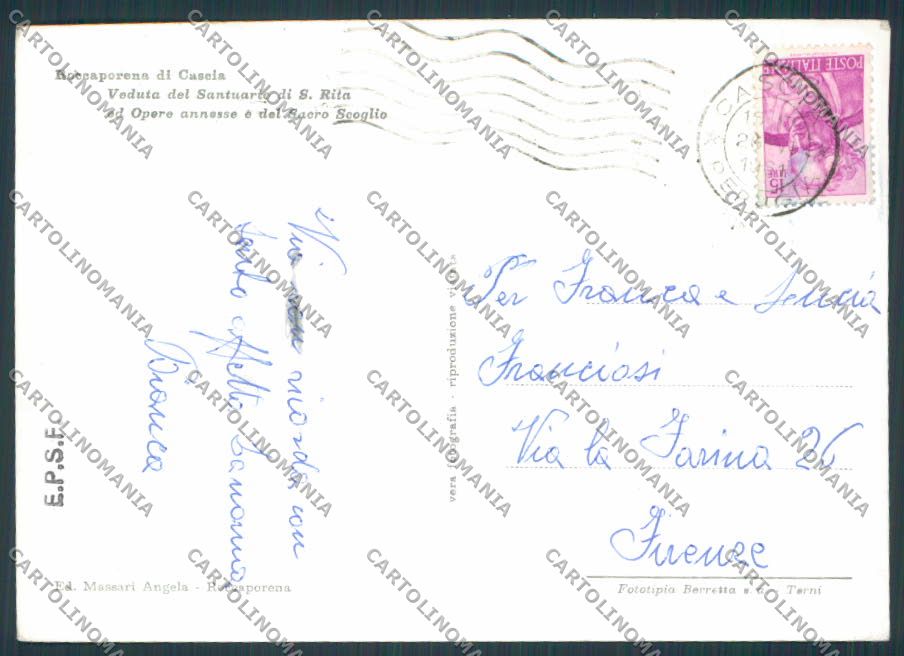 Roccaporena di Cascia
Veduta del Santuario di S. Rita
ed Opere annesse e del Sacro Scoglio
POSTE ITALIANE
15 LIRE
Vi ricorda con
tanto affetto
Bianca
E.P.S.F.
vera fotografia - riproduzione vietata
Per Franca e
Franciosi
Via la Farina 26
Firenze
Ed. Massari Angela - Roccaporena
Fototipia Berretta Terni
CARTOLINOMANIA